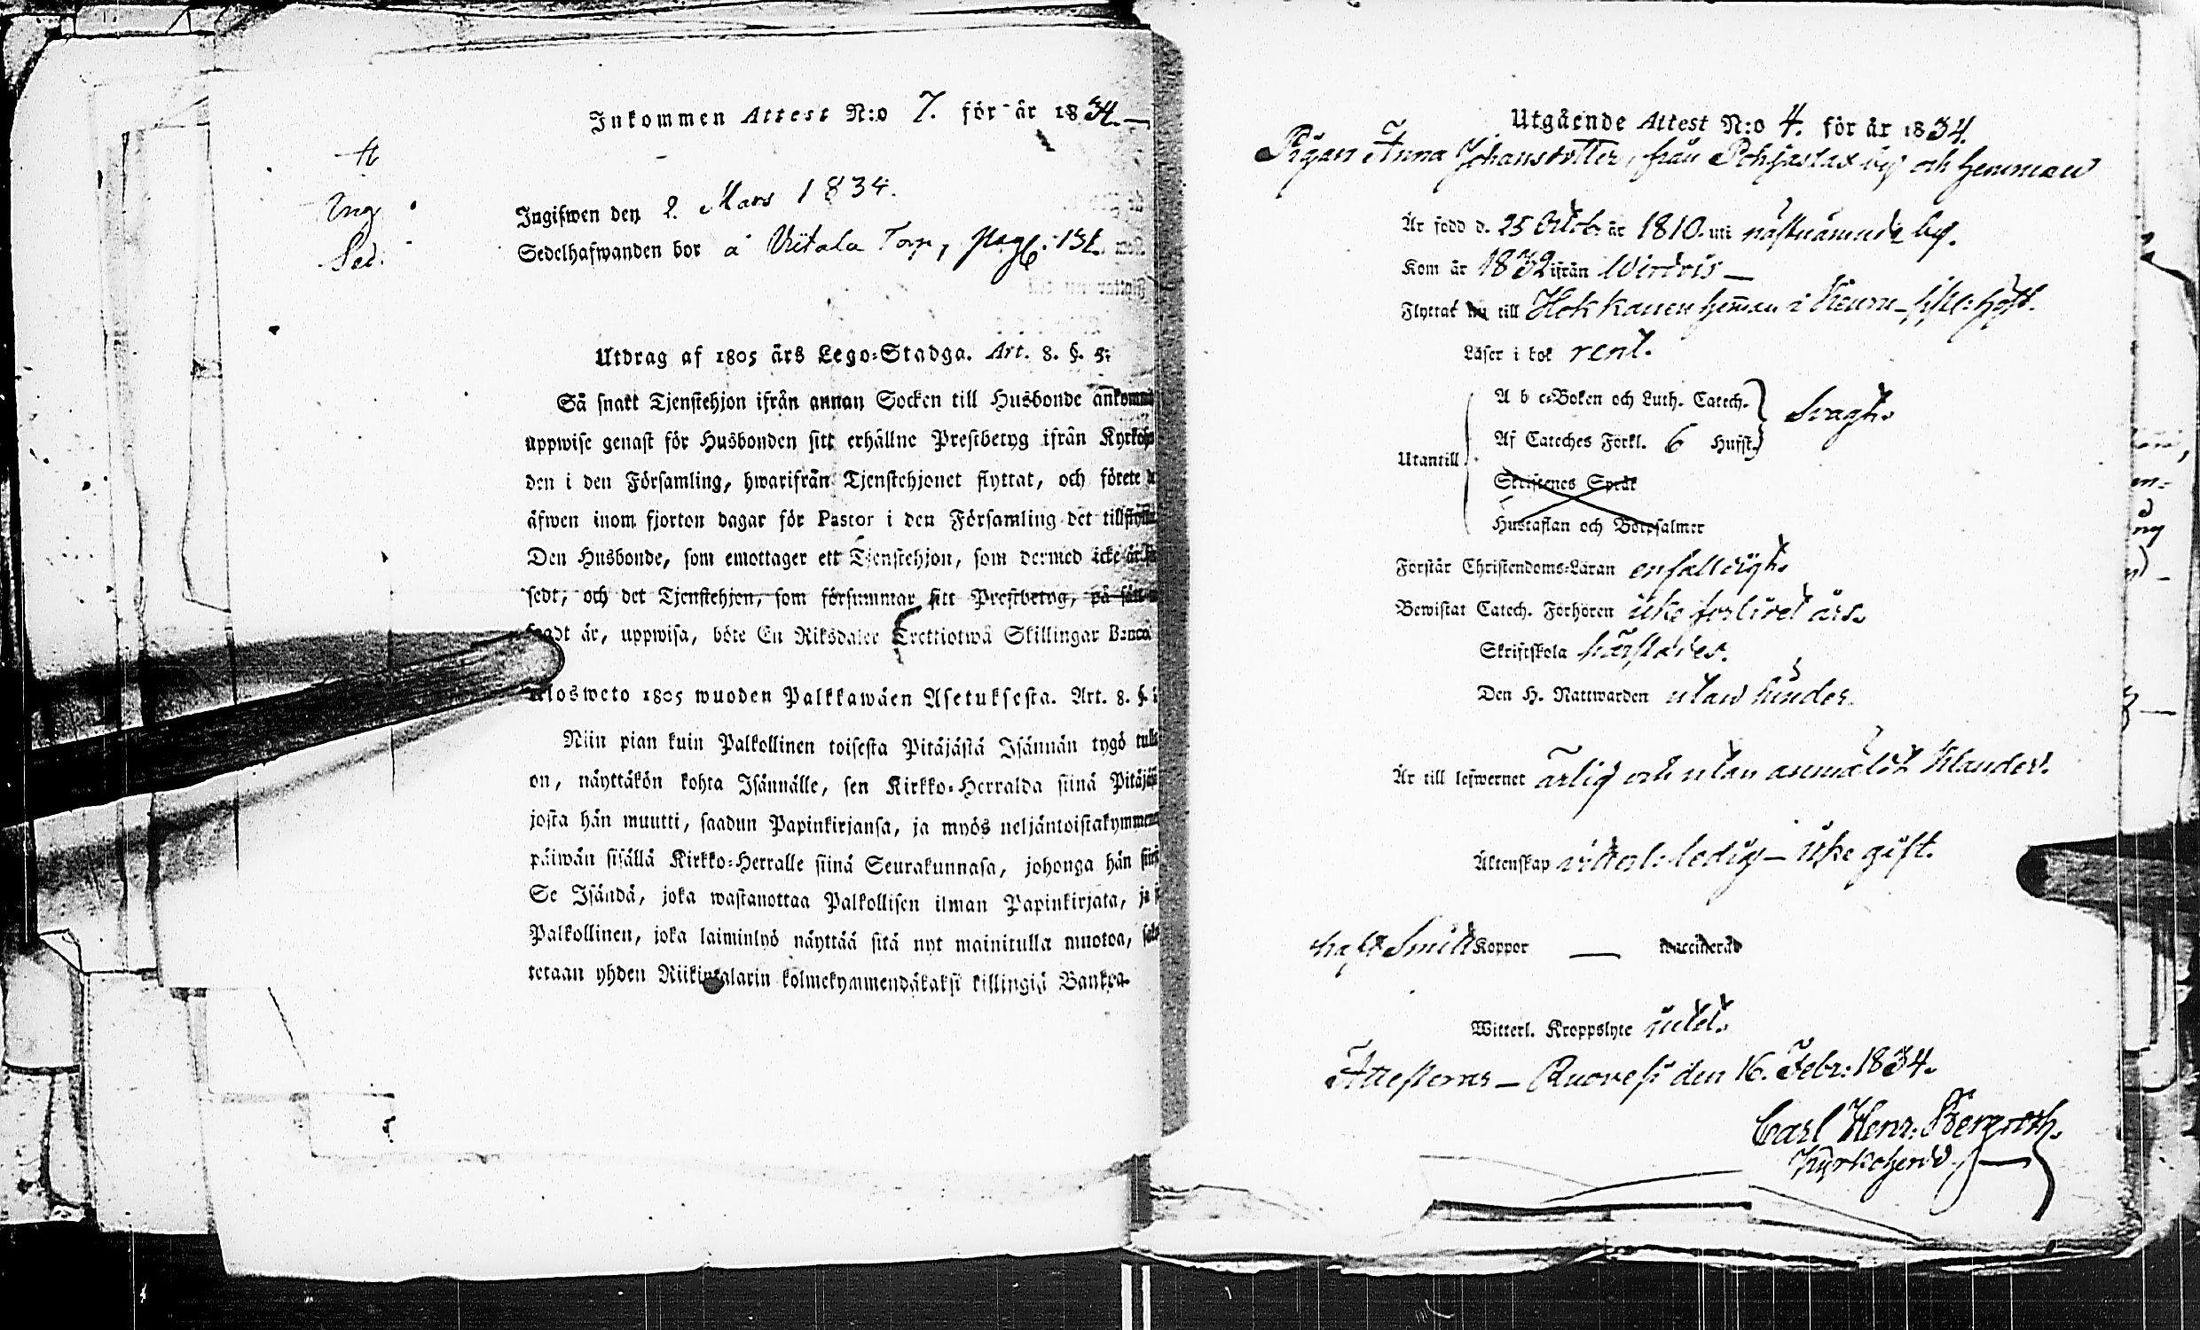 Inkommen Attest N:o 7. för år 1834.
Ing
Sed:
Ingifwen den 2. Mars 1834.
Sedelhafwanden bor å Uitala Torp, pag. 131.
Utdrag af 1805 års Lego-Stadga. Art. 8. §. 5:
Så snart Tjenstehjon ifrån annan Socken till Husbonde ankommit
uppwise genast för Husbonden sitt erhållne Prestbetyg ifrån
den i den Församling, hwarifrån Tjenstehjonet flyttat, och förete
äfwen inom fjorton dagar för Pastor i den Församling det
Den Husbonde, som emottager ett Tjenstehjon, som dermed icke är
sedt, och det Tjenstehjon, som försummar sitt Prestbetyg, på sätt
sagdt är, uppwisa, böte En Riksdaler Trettiotwå Skillingar Banco
Ulosweto 1805 wuoden Palkkawäen Asetuksesta. Art. 8. §.
Niin pian kuin Palkollinen toisesta Pitäjästä Isännän tygö
on, näyttäkön kohta Isännälle, sen Kirkko-Herralda siinä
josta hän muutti, saadun Papinkirjansa, ja myös neljäntoistakymmen
päiwän sisällä Kirkko-Herralle siinä Seurakunnasa, johonga hän
Se Isändä, joka wastanottaa Palkollisen ilman Papinkirjata, ja
Palkollinen, joka laiminlyö näyttää sitä nyt mainitulla muotoa,
tetaan yhden Riikintalarin kolmekymmendäkaksi killingiä Bankoa.
Utgående Attest N:o 4. för år 1834.
Pigan Anna Johansdotter, från Pohjaslax by och hemman
Är född d. 25 Octob. år 1810. uti nästnämnde by.
Kom år 1832 ifrån Wirdois
Flyttat nu till Hokkanen hemman i Keuru
Läser i bok rent.
Utantill
A b c-Boken och Luth. Catech.
Af Cateches Förkl. 6 Hufst.
Svagt.
Skriftenes Språk
Hustaflan och Botpsalmer
Förstår Christendoms-Läran enfalldigt.
Bewistat Catech. Förhören icke förlidet års.
Skriftskola härstädes.
Den H. Nattwarden utan hinder.
Är till lefwernet ärlig och utan anmäldt klander.
Äktenskap witterl. ledig – icke gift.
haft Smitt Koppor — vaccinerad
Witterl. Kroppslyte intet.
Attesteras – Ruovesi den 16. Febr. 1834.
Carl Henr: Bergroth.
Kyrkoherd.